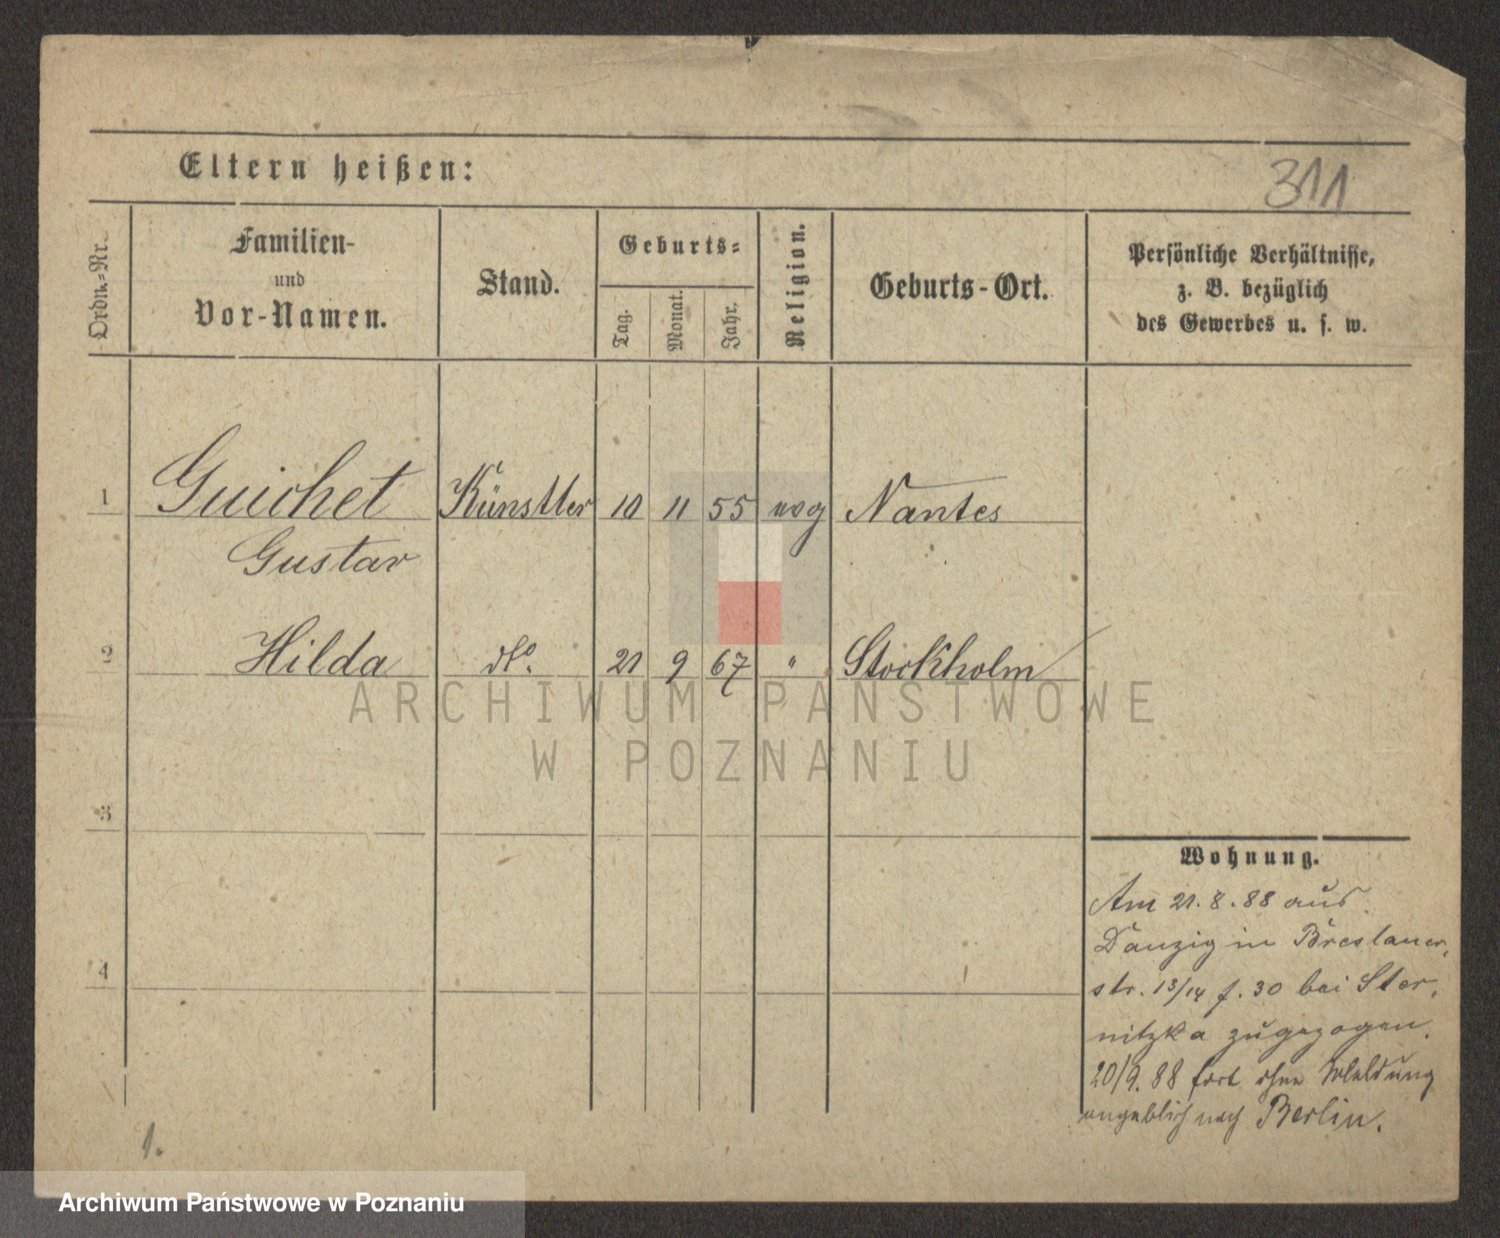 Eltern heißen:
311
Ordn.-Nr.
Familien-
und
Vor-Namen.
Stand.
Geburts-
Tag.
Monat.
Jahr.
Religion.
Geburts-Ort.
Persönliche Verhältnisse,
z. B. bezüglich
des Gewerbes u. s. w.
1 Guichet Künstler 10 11 55 evg Nantes
Gustav
2 Hilda dto. 21 9 67 " Stockholm
ARCHIWUM PAŃSTWOWE
W POZNANIU
3
Wohnung.
Am 21.8.88 aus
Danzig in Breslauer
4
str. 13/14 f. 30 bei Ster-
nitzka zugezogen.
20/9.88 fort ohne Meldung
angeblich nach Berlin.
1.
Archiwum Państwowe w Poznaniu